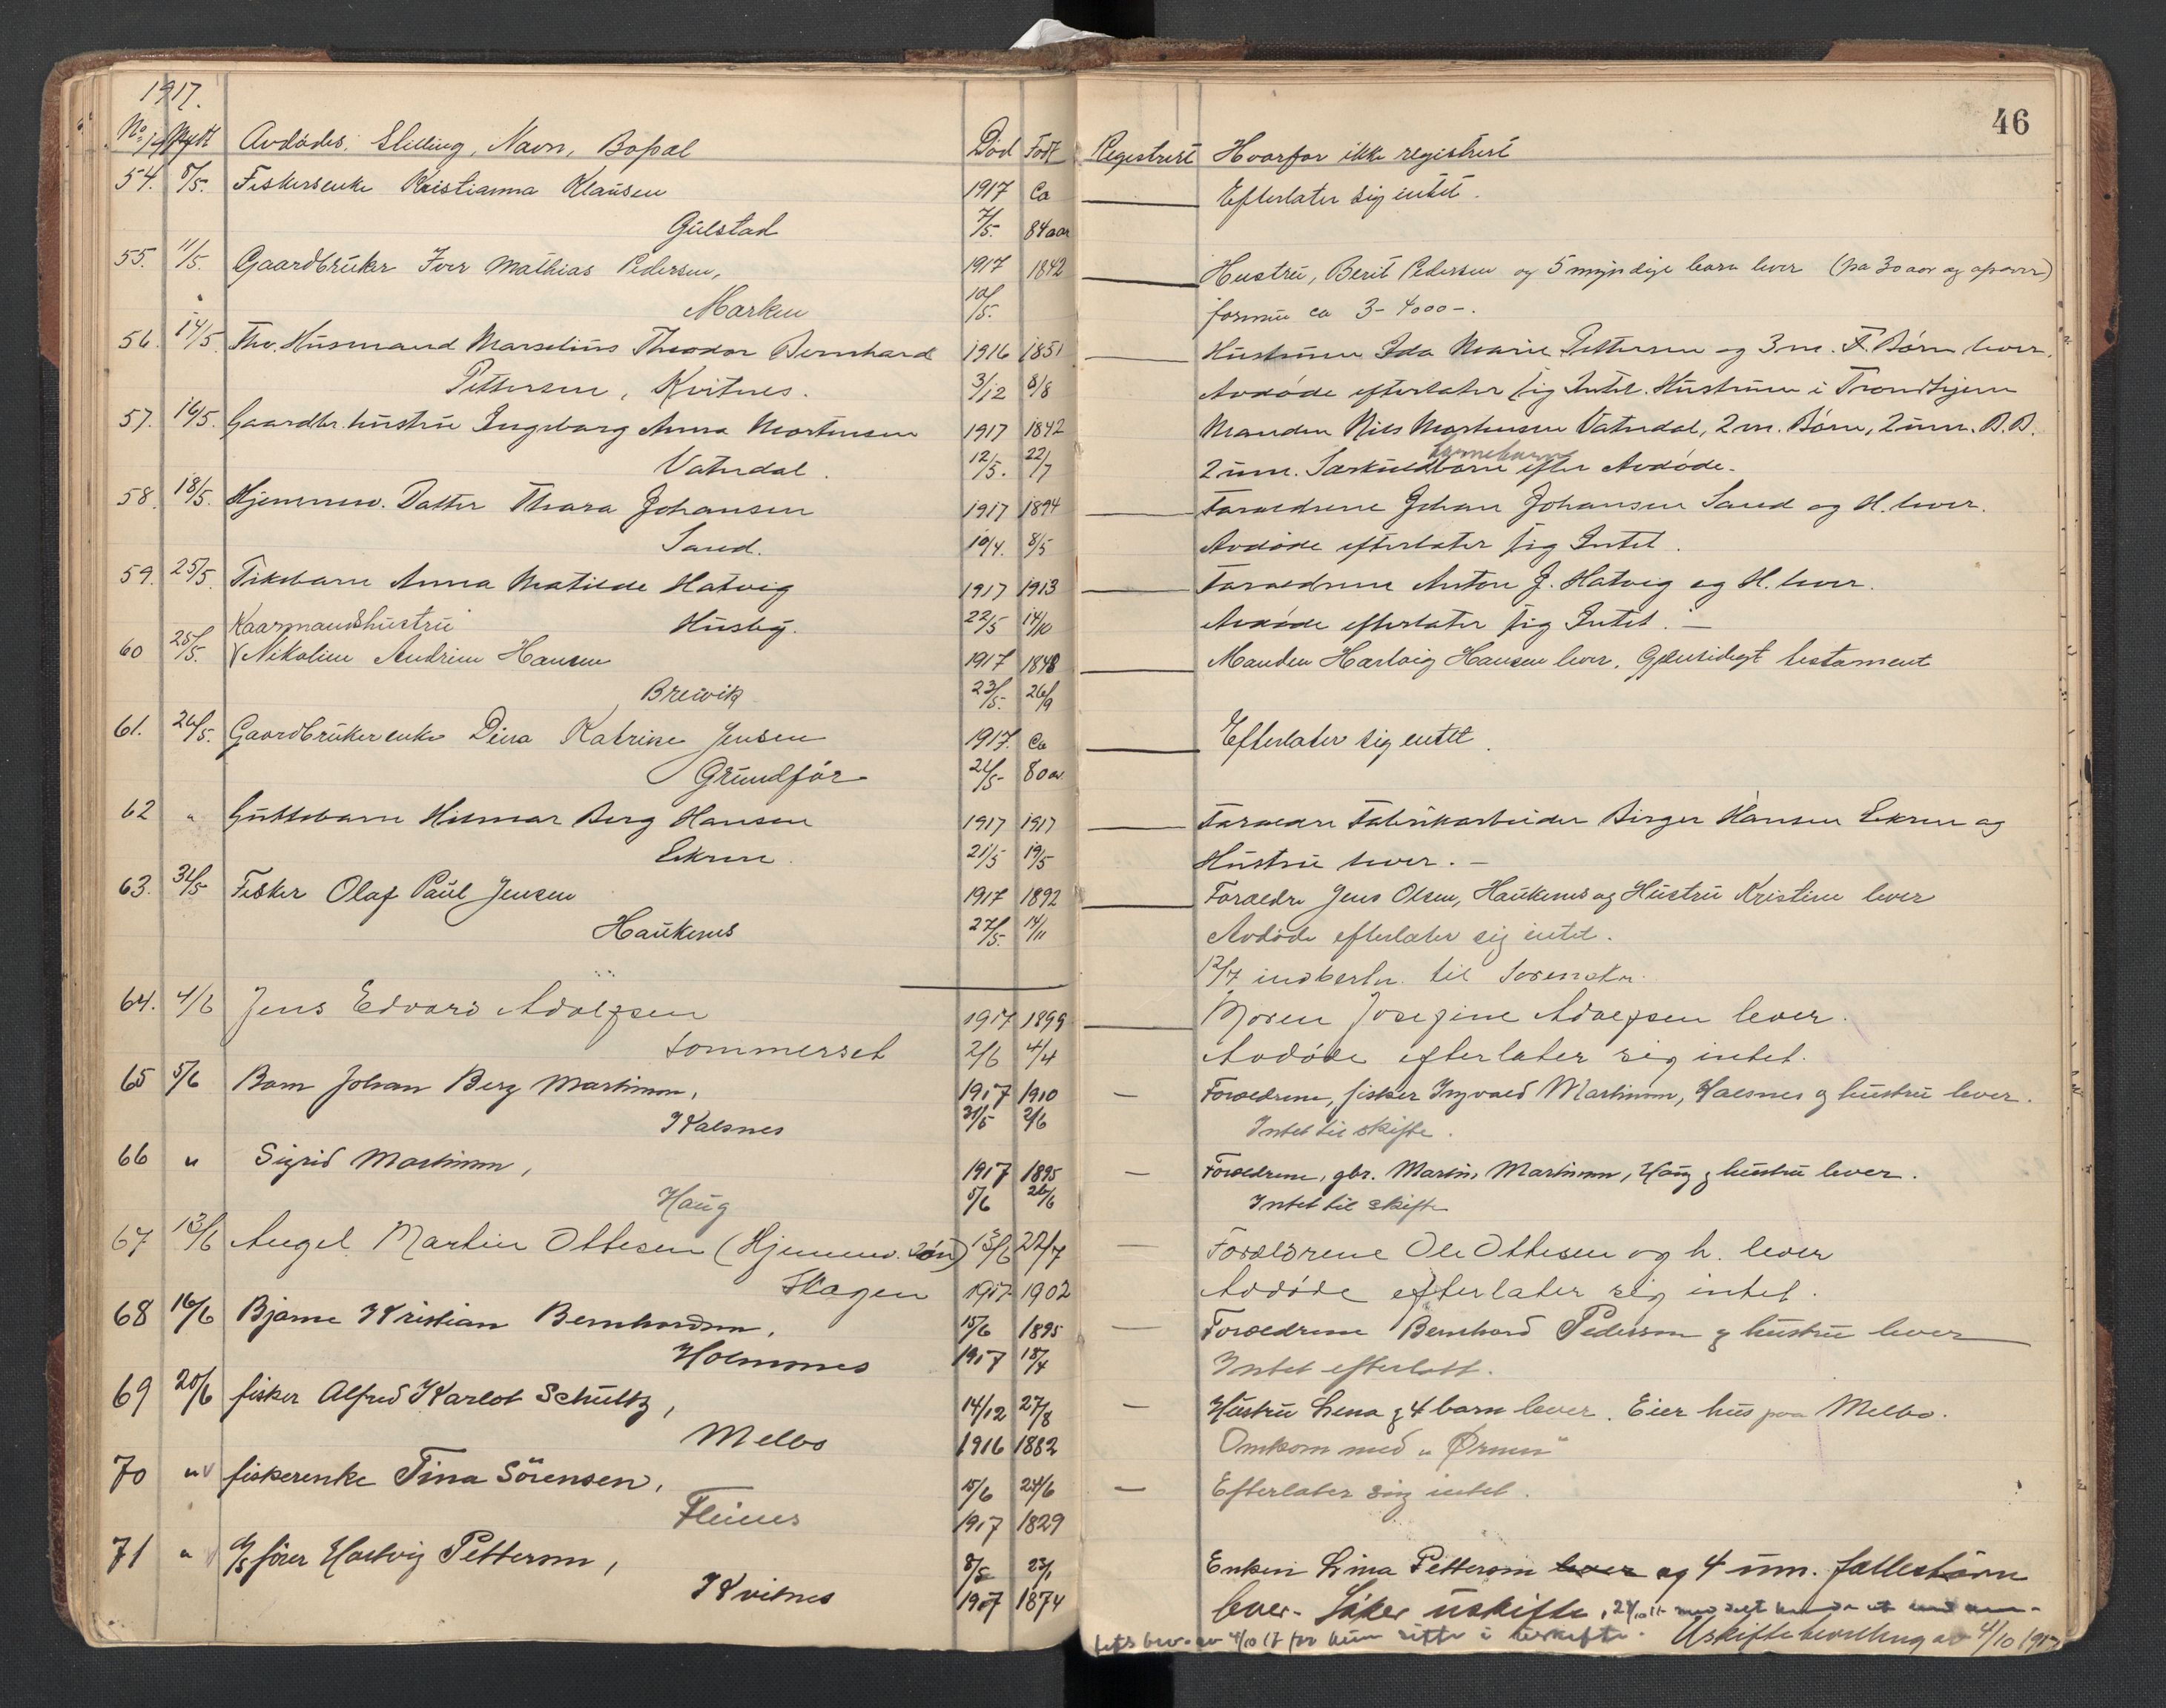 46
1917.
No Avdødes. Stilling, Navn, Bopæl Død Født Registrert Hvorfor ikke registrert
54. 8/5. Fiskerenke Kristianna Klausen 1917 Ca Efterlater sig intet.
Gulstad 7/5. 84 aar
55. 11/5. Gaardbruker Iver Mathias Pedersen, 1917 1842 Hustru, Berit Pedersen og 5 myndige barn lever (fra 30 aar og opover)
Marken 10/5. formue ca 3-4000-.
56. 14/5. Fhv. Husmand Marselius Theodor Bernhard 1916 1851 Hustruen Ida Marie Pettersen og 3 m. F. Børn lever.
Pettersen, Kvitnes. 3/12 8/8 Avdøde efterlater sig Intet. Hustruen i Trondhjem
57. 16/5. Gaardbr. hustru Ingeborg Anna Mortensen 1917 1842 Manden Nils Mortensen Vatndal, 2 m. Børn, 2 um. B.B.
Vatndal. 12/5. 22/7 2 um. Særkuldbarns barnebarn efter Avdøde.
58. 18/5. Hjemmev. Datter Thora Johansen 1917 1894 Forældrene Johan Johansen Sand og H. lever.
Sand. 10/4. 8/5 Avdøde efterlater sig Intet.
59. 25/5. Pikebarn Anna Matilde Hatvig 1917 1913 Forældrene Anton J. Hatvig og H. lever.
Husby. 22/5 14/10 Avdøde efterlater sig Intet. —
Kaarmandshustru
60 25/5. Nikoline Andrine Hansen 1917 1848 Manden Hartvig Hansen lever. Gjensidigt testament
Breivik 23/5. 26/9
61. 26/5. Gaardbrukerenke Dina Katrine Jensen 1917. Ca Efterlater sig intet.
Grundfør 21/5 80 aar
62 " Guttebarn Hilmar Berg Hansen 1917 1917 Forældre Fabrikarbeider Birger Hansen Ekren og
Ekren. 21/5 19/5 Hustru lever. —
63. 31/5 Fisker Olaf Paul Jensen 1917 1892 Forældre Jens Olsen, Haukenes og Hustru Kristine lever
Haukenes 27/5. 14/11 Avdøde efterlater sig intet.
12/7 indberetn. til Sorenskr.
64. 4/6 Jens Edvard Adolfsen 1917 1899 Moren Josefine Adolfsen lever.
Sommerset 2/6 4/4 Avdøde efterlater sig intet.
65 5/6 Barn Johan Berg Martinsen, 1917 1910 — Forældrene, fisker Ingvald Martinsen, Kalsnes og hustru lever.
Kalsnes 31/5 2/6 Intet til skifte.
66 " Sigrid Martinsen, 1917 1895 — Forældrene, gbr. Martin Martinsen, Haug og hustru lever.
Haug 5/6 26/6 Intet til skifte
67 13/6 Angel Martin Ottesen (Hjemmev. søn) 13/6 22/7 — Forældrene Ole Ottesen og h. lever
Skagen 1917 1902 Avdøde efterlater sig intet.
68 16/6 Bjarne Kristian Bernhardsen, 15/6 1895 — Forældrene Bernhard Pedersen og hustru lever
Holmsnes 1917 18/4 Intet efterlatt.
69 20/6 fisker Alfred Karlot Schultz, 14/12 27/8 — Hustru Lena og 4 barn lever. Eier hus paa Melbo.
Melbo 1916 1882 Omkom med "Ørnen"
70 " fiskerenke Tina Sørensen, 15/6 24/6 — Efterlater sig intet.
Fleines 1917 1829
71 " d/s fører Hartvig Pettersen, 8/5 23/1 Enken Lina Pettersen lever og 4 um. fællesbørn
Kvitnes 1917 1874 lever. Søker uskifte,
bev. av 4/10 17 for sitte i uskifte. Uskiftebevilling av 4/10 1917